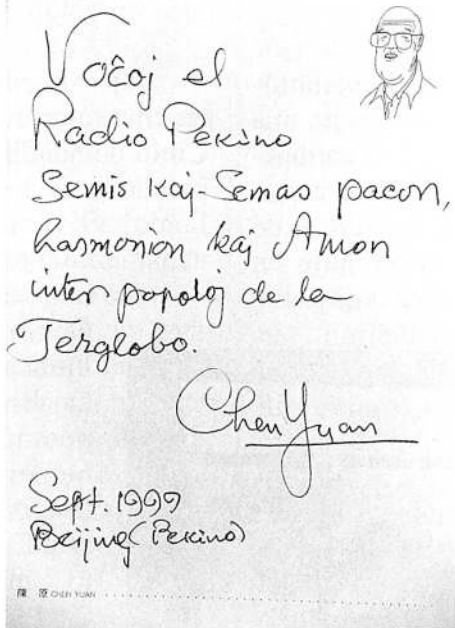 Voĉoj el
Radio Pekino
Semis kaj Semas pacon,
harmonion kaj Amon
inter popoloj de la
Terglobo.
Chen Yuan
Sept. 1999
Beijing (Pekino)
陳 原 CHEN YUAN